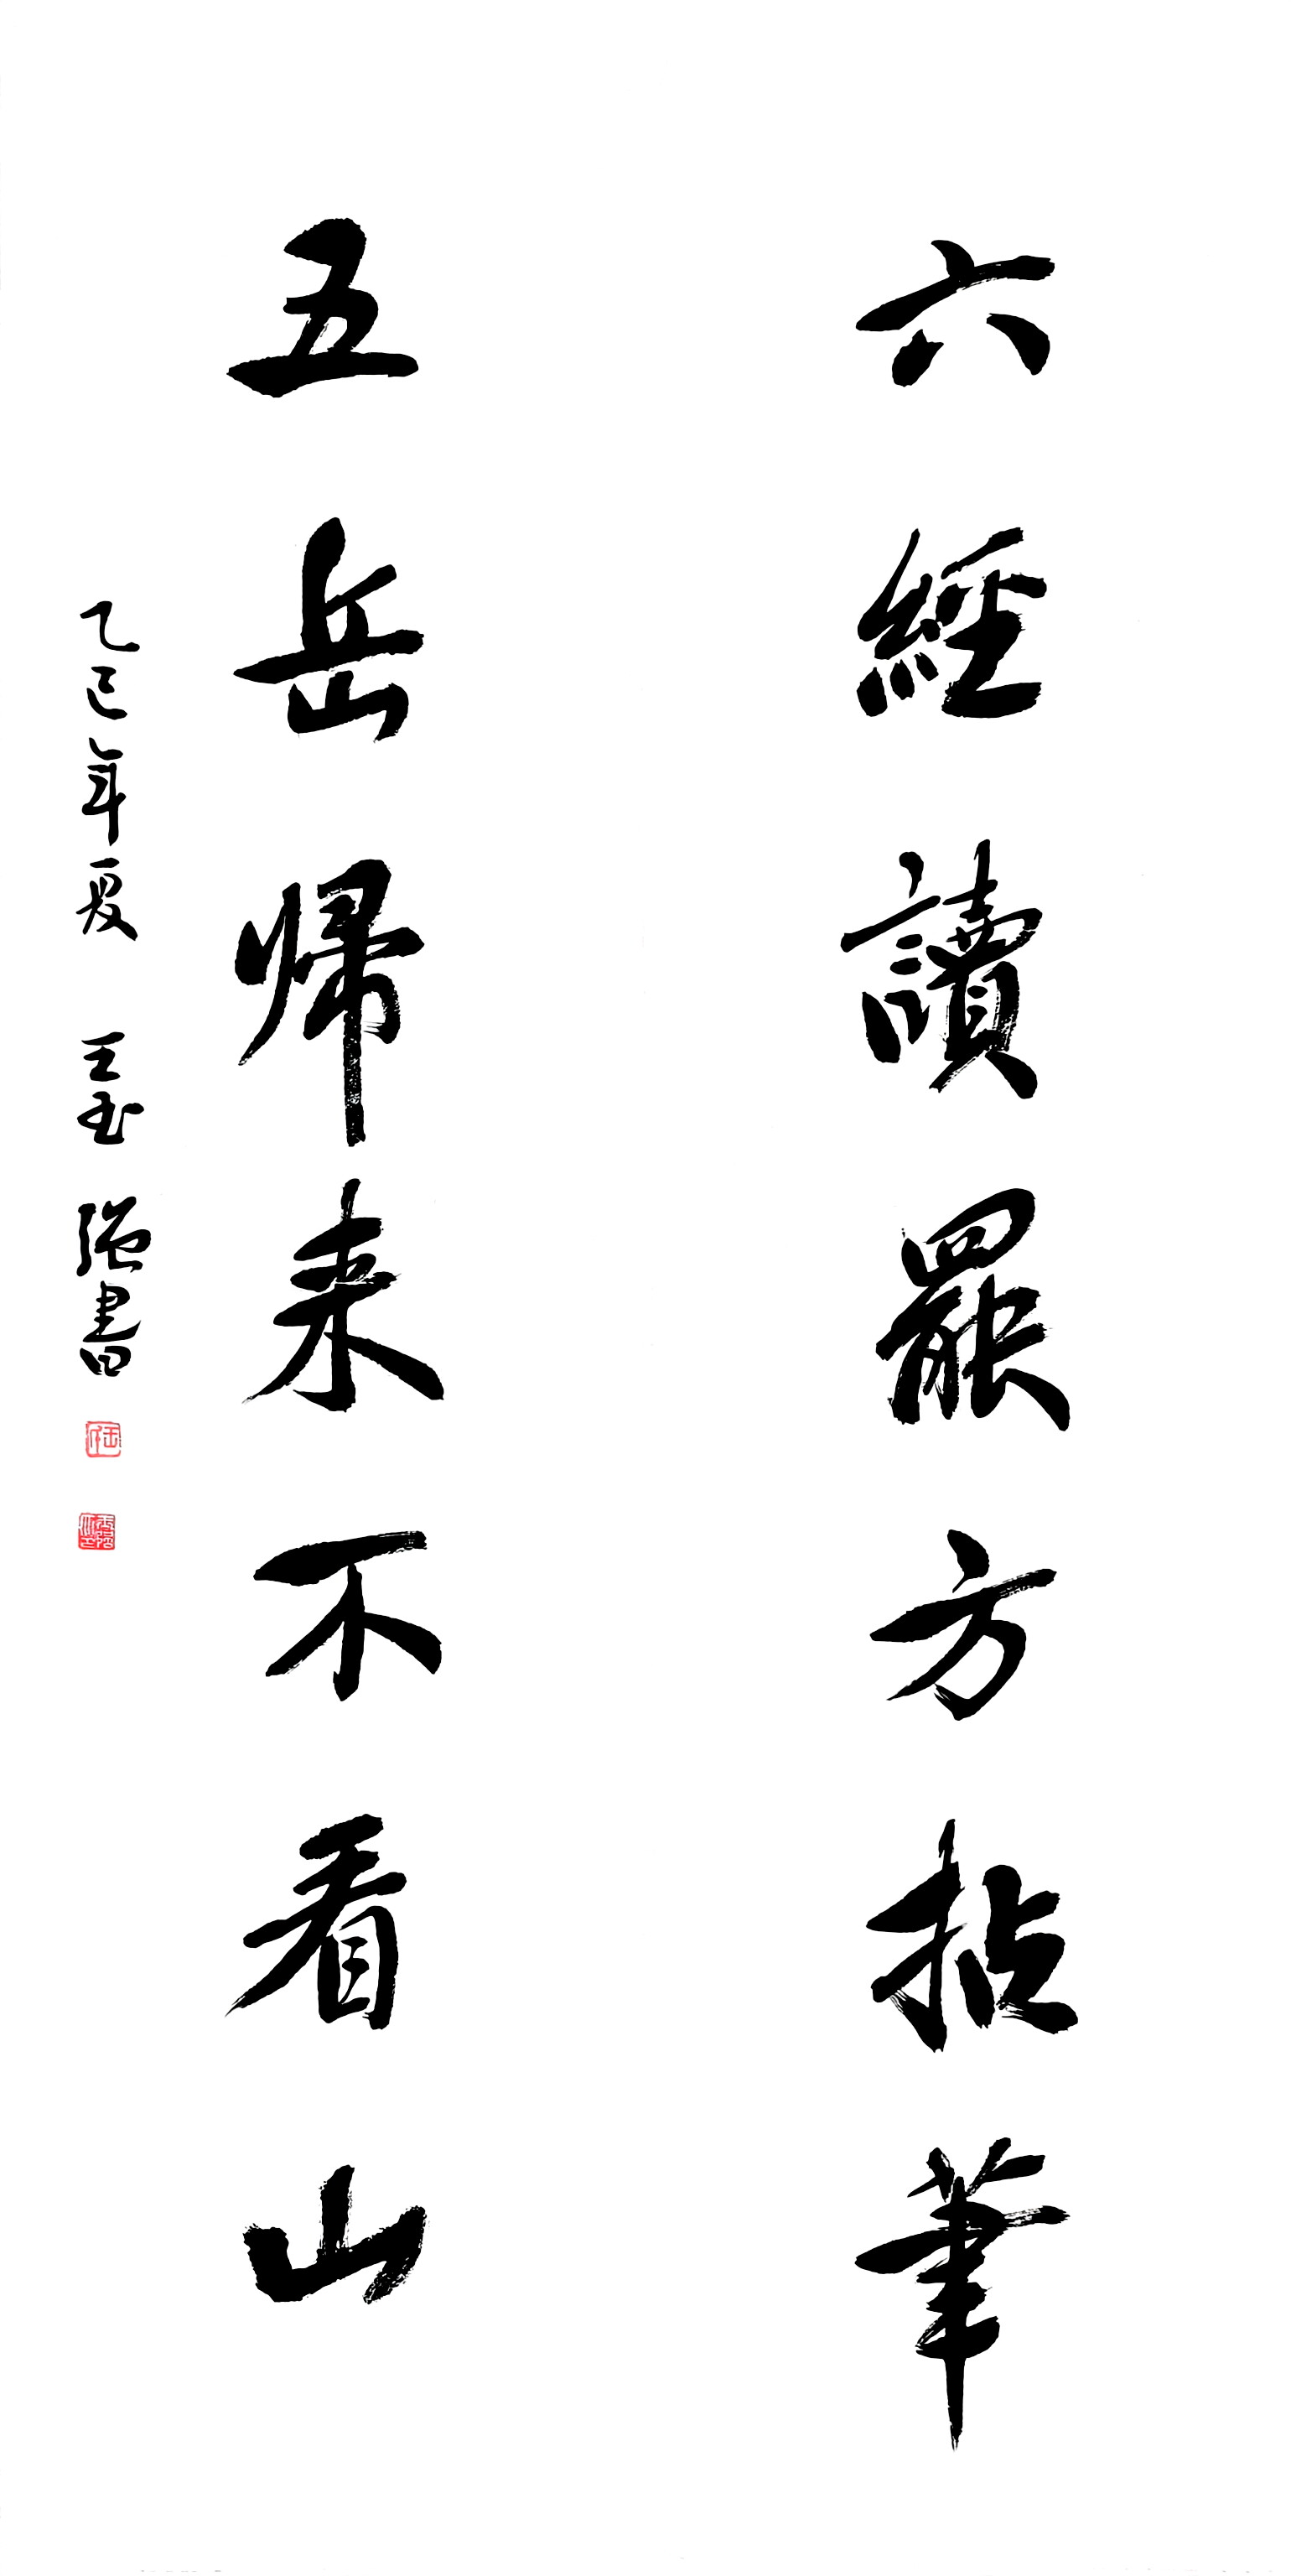 六經讀罷方拈筆
五岳帰来不看山
乙巳年夏 王玉强書